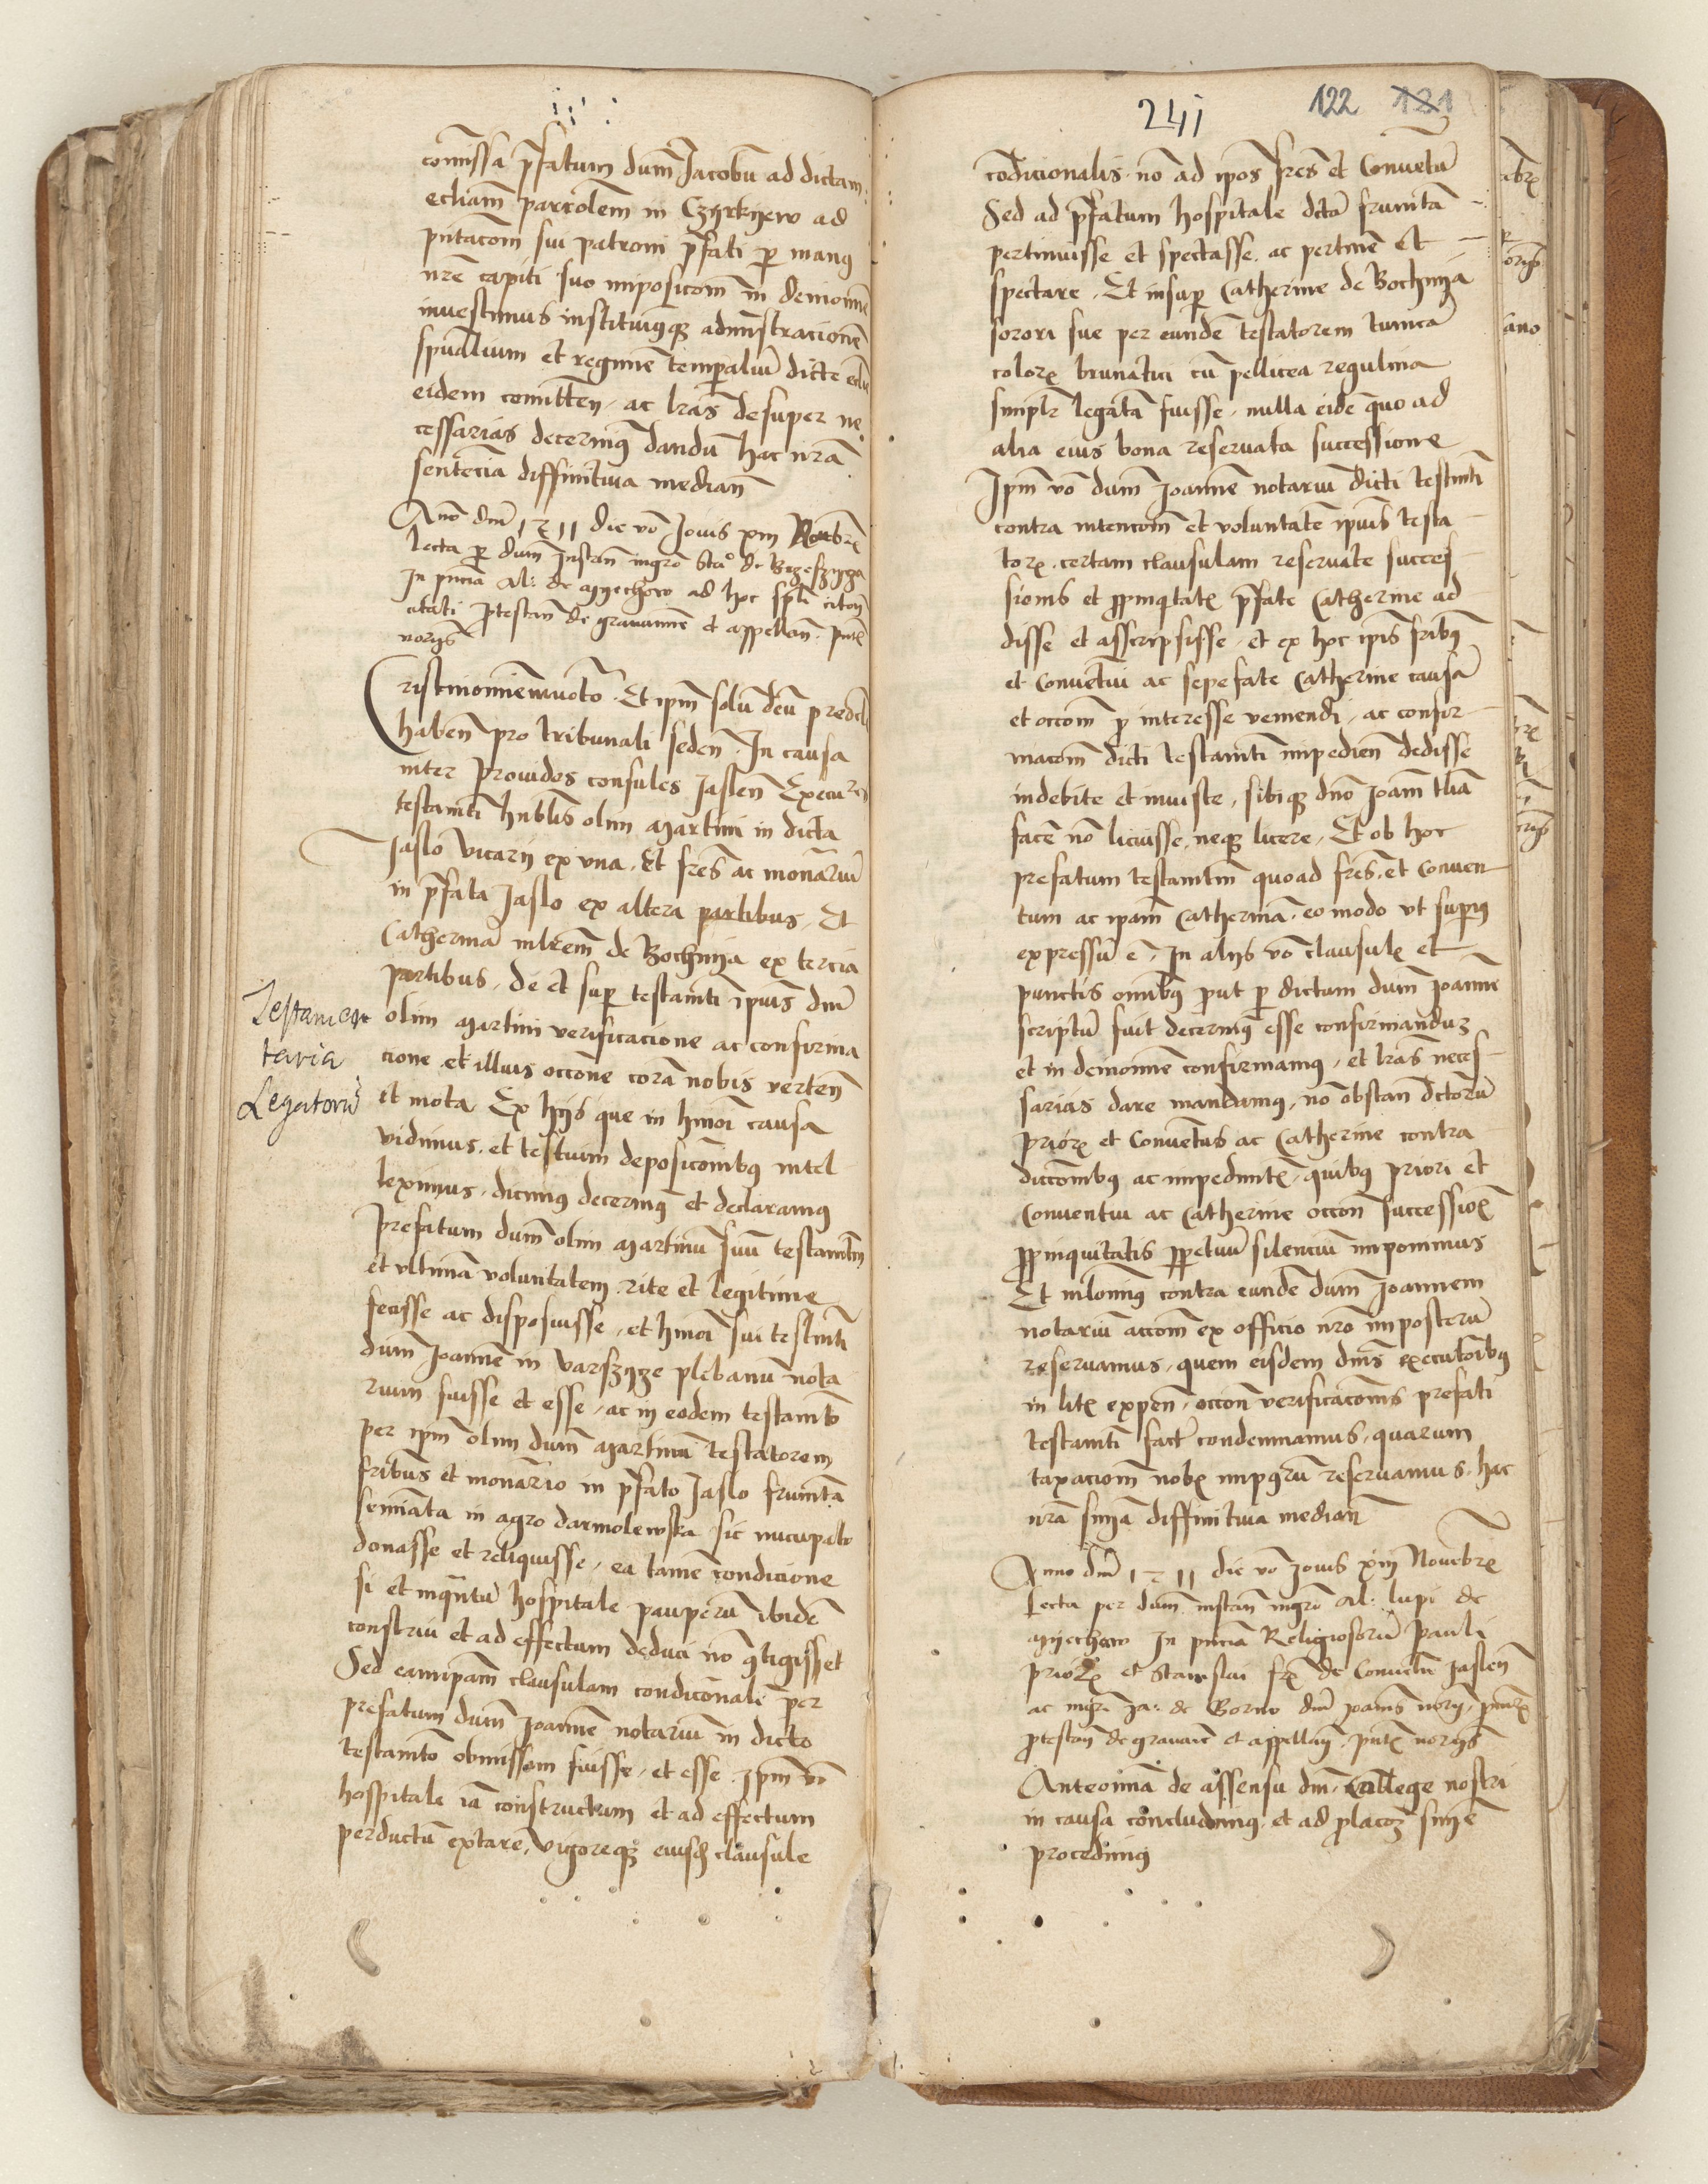 comissa p̃fatum dum̃ Jacobũ ad dictam
ecc̃liam̃ parrolem̃ in Czyrknew ad
pñtacom̃ sui patroni p̃fati p manꝰ
nr̃e capiti suo imposicom̃ in dei nomĩe
inuestimus instituimꝰqꝫ administracionẽ
spũalium et regimẽ temporaliũ dicte ecclie
eidem comitteñ, ac lr̃as desuper ne
cessarias decernimꝰ dandũ hac nr̃a
sentẽcia diffinitiua mediañ
Año dñi 1511 die vo Jouis xiii Nouẽbr̃
lecta p dum̃ Instañ mgr̃o Sta: de Brzeszyny
In pñcia Al: de Myechow ad hoc spẽli citoñ
citati Protestañ de grauamĩe et appellañ. pñt
noryś
Cristi nomĩe inuocato. Et ipm̃ solũ deũ pre oclis
habeñ pro tribunali sedeñ. In causa
inter prouidos consules Jasleñ Execut
testamti hñblis olim Martini in dicta
Jaslo vicarij ex vna, Et fr̃es ac monãriũ
in p̃fata Jaslo ex altera partibus, Et
Catherinã mlr̃em de Bochnija ex tercia
partibus, de et sup testamti ipiuś dñi
olim Martini verificacione ac confirma
cione et illius occone corã nobis verteñ
et mota Ex hijs que in hmõi causa
vidimus, et testium deposicoñibꝰ intel
leximus, dicimꝰ decernimꝰ et declaramꝰ
Prefatum dum̃ olim Martinũ suũ testamtm̃
et vltimã voluntatem rite et legitime
fecisse ac disposuisse, et hmõi sui testmti
dum̃ Joannẽ in Varszyze plebanũ nota
rium fuisse et esse, ac in eodem testamto
per ipm̃ olim dum̃ Martinũ testatorem
fribus et monãrio in p̃fato Jaslo frumta
semĩata in agro darmolewska sic nũcupato
donasse et reliquisse, ea tamẽ condicione
si et inqñtũ hospitale pauperũ ibidẽ
construi et ad effectum deduci nõ ꝯtigisset
Sed eamipam̃ clausulam condicionalẽ per
prefatum dum̃ Joannẽ notariũ in dicto
testamto obmissam fuisse, et esse. Ipm̃ vo
hospitale iã constructum et ad effectum
perductũ extare, vigoreqꝫ eiusd clausule
Testamen
taria
Legatorũ
241
122 121
cõdicionalis, nõ ad ipos fres et Conuẽtũ
Sed ad p̃fatum hospitale dcta frumta
pertinuisse et spectasse, ac pertinẽ et
spectare, Et insup Catherine de Bochnija
sorori sue per eundẽ testatorem tunicã
coloris brunatici cũ pellicea regulina
simplr̃ legatã fuisse, nulla eidẽ quo ad
alia eius bona reseruata successione
Ipm̃ vo dum̃ Joannẽ notariũ dicti testmti
contra intencom̃ et voluntatẽ ipius testa
toris, certam clausulam reseruate succes
sionis et ꝓpinqtatis p̃fate Catherine ad
disse et asscripsisse, et ex hoc ipis fribꝰ
et Conuẽtui ac sepefate Catherine causã
et occom̃ p interesse veniendi, ac confir
macom̃ dicti testamti impedieñ dedisse
indebite et iniuste, sibiqꝫ dño Joañi tlia
facẽ nõ licuisse, neqꝫ licere, Et ob hoc
prefatum testamtm̃ quoad fres, et Conuen
tum ac ipam̃ Catherinã, eo modo vt supiꝰ
expressũ ẽ, In alijs vo clausulis et
punctis omibꝰ put p dictum dum̃ Joannẽ
scriptũ fuit decernimꝰ esse confirmandũ
et in dei nomĩe confirmamꝰ, et lr̃as neces
sarias dare mandamꝰ, nõ obstañ dctorũ
prioris et Conuentus ac Catherine contra
diccoñibꝰ ac impedimtis, quibꝰ priori et
Conuentui ac Catherine occoñ successiõis
ꝓpinquitatis ꝑpetuũ silenciũ imponimus
Et nlõminꝰ contra eundẽ dum̃ Joannem
notariũ accom̃ ex officio nr̃o imposterũ
reseruamus, quem eisdem dñis executoribꝰ
in litis expeñ, occoñ verificacoñis prefati
testamti fact condemnamus, quarum
taxaciom̃ nobis imposterũ reseruamus, hac
nr̃a sñia diffinitiua mediañ
Anno dñi 1511 die vo Jouis xiii Nouẽbris
Lecta per dum̃ instañ mgr̃o Al: lupi de
Myechow In pñcia Religiosorũ Pauli
prioris et Stanislai fris de Conuẽtu Jasleñ
ac mgr̃i Ja: de Borno dñi Joannis norij, pñciũ
protestañ de grauamĩe et appellañ, pñtis noryś
Anteoĩmã de assensu dñi, College nostri
in causa concludimꝰ, et ad ꝓlacoẽ sñie
procedimꝰ